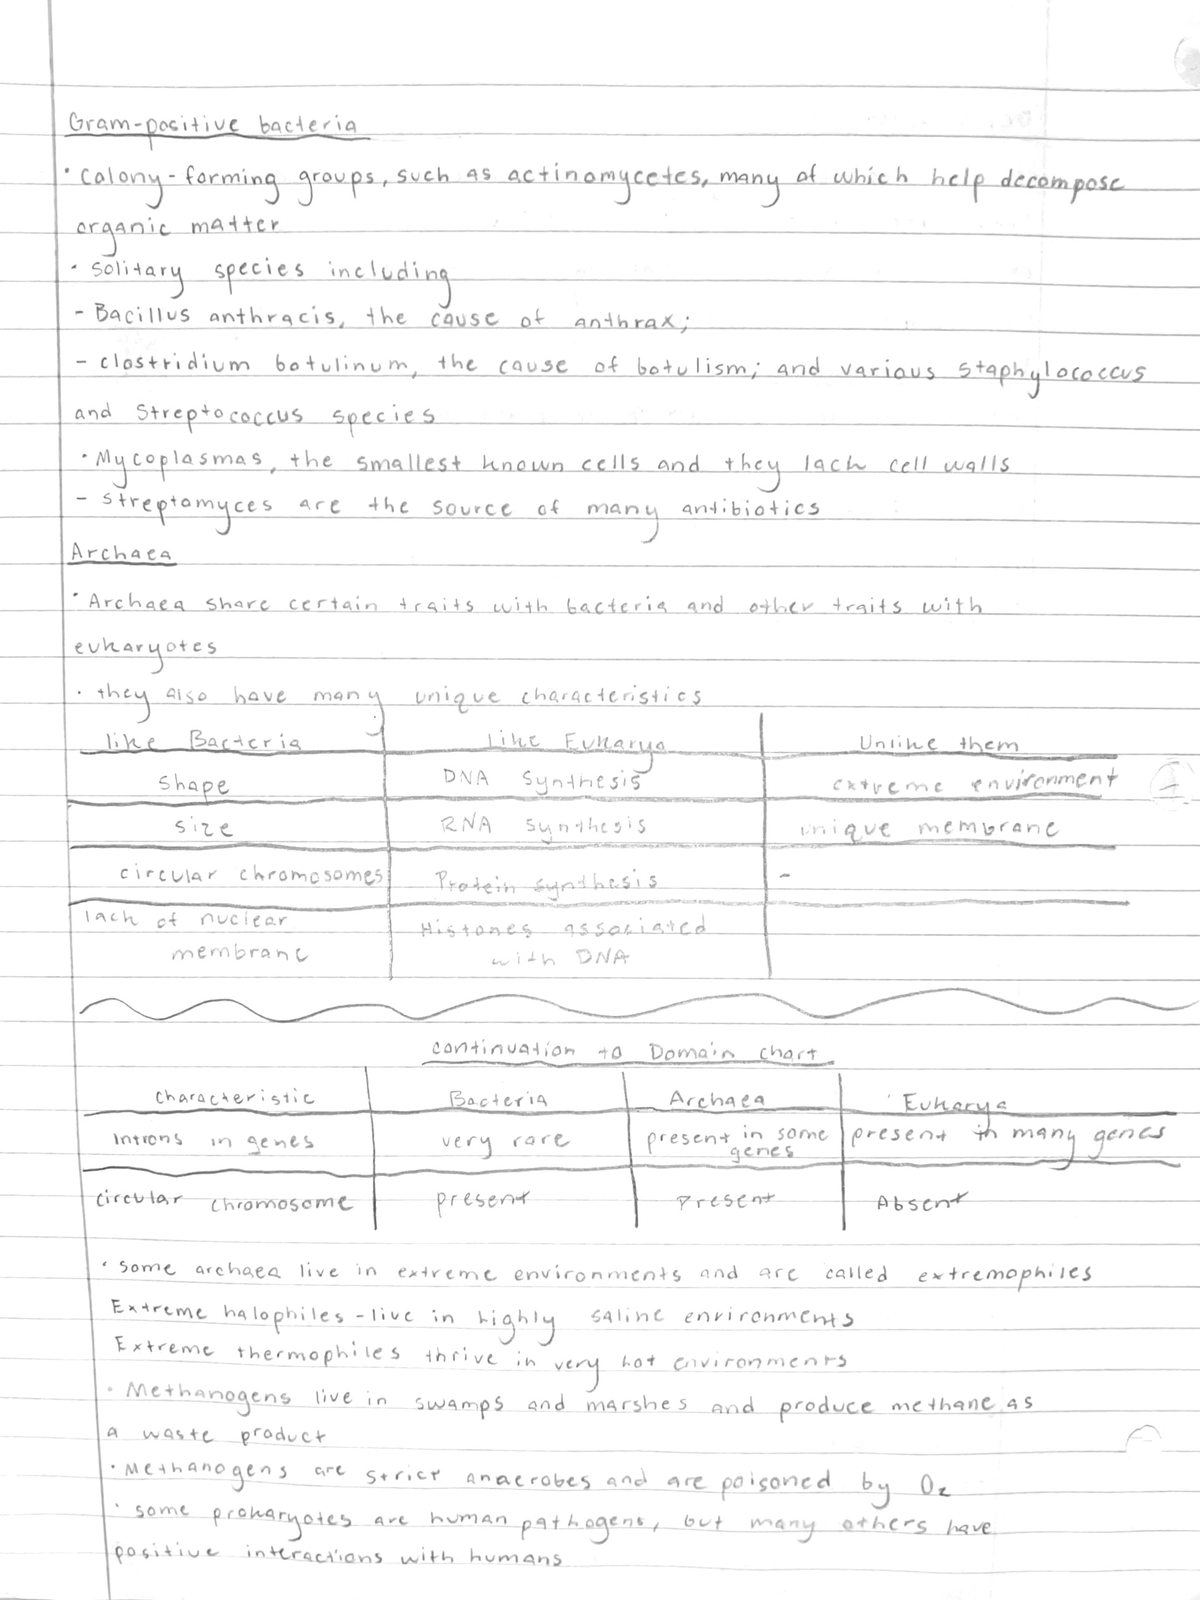 Gram-positive bacteria
• colony-forming groups, such as actinomycetes, many of which help decompose
organic matter
• solitary species including
- Bacillus anthracis, the cause of anthrax;
- clostridium botulinum, the cause of botulism; and various staphylococcus
and Streptococcus species
• Mycoplasmas, the smallest known cells and they lack cell walls
- streptomyces are the source of many antibiotics
Archaea
• Archaea share certain traits with bacteria and other traits with
eukaryotes
• they also have many unique characteristics
like Bacteria | Like Eukarya | Unlike them
shape | DNA Synthesis | extreme environment
size | RNA synthesis | unique membrane
circular chromosomes | Protein synthesis | -
lack of nuclear | Histones associated
membrane | with DNA
continuation to Domain chart
Characteristic | Bacteria | Archaea | Eukarya
Introns in genes | very rare | present in some | present in many genes
genes
circular chromosome | present | Present | Absent
• some archaea live in extreme environments and are called extremophiles
Extreme halophiles - live in highly saline environments
Extreme thermophiles thrive in very hot environments
• Methanogens live in swamps and marshes and produce methane as
a waste product
• Methanogens are strict anaerobes and are poisoned by O₂
• some prokaryotes are human pathogens, but many others have
positive interactions with humans